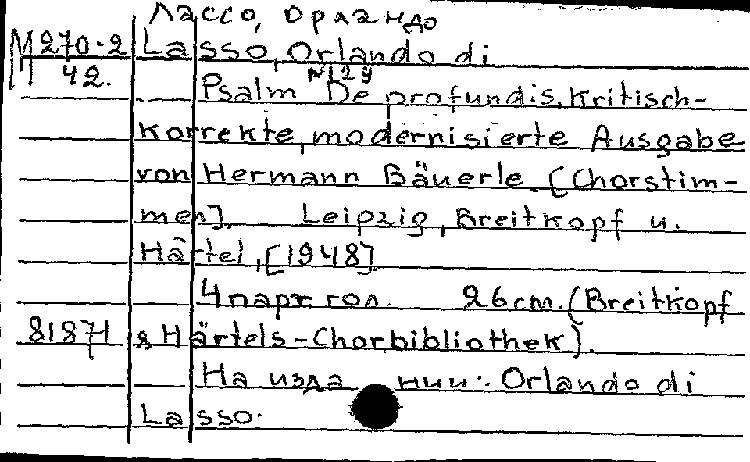 Лассо, Орландо
М270-2 Lasso, Orlando di
42. №129
Psalm De profundis, Kritisch-
korrekte, modernisierte Ausgabe
von Hermann Bäuerle. [Chorstim-
men]. Leipzig, Breitkopf u.
Härtel, [1948]
4 парт. гол. 26cm. (Breitkopf
& Härtels-Chorbibliothek).
На изда нии: Orlando di
Lasso.